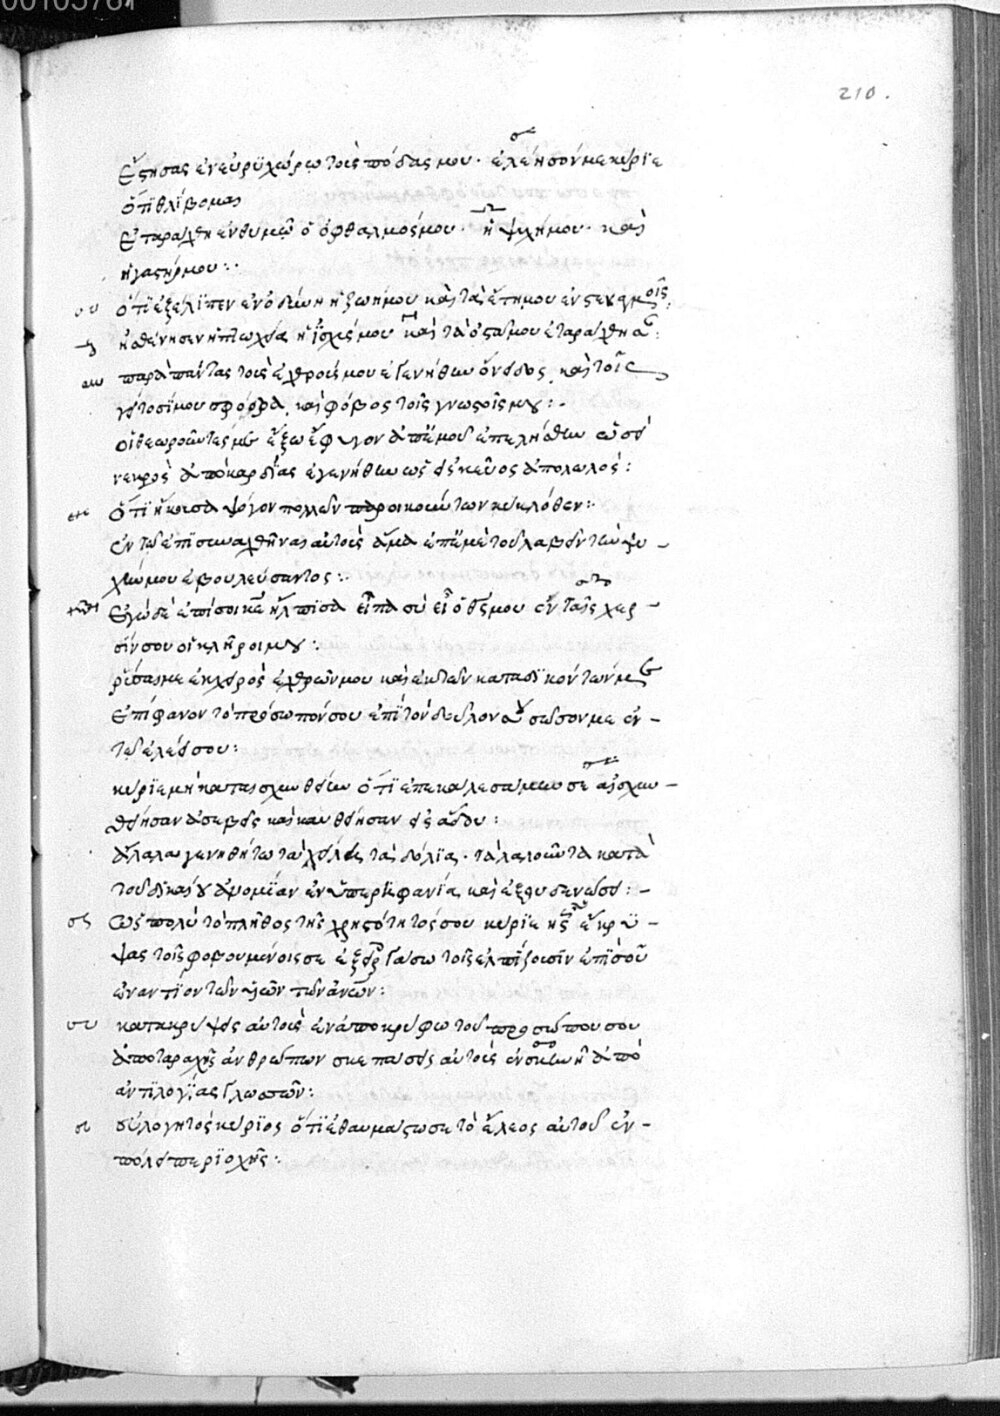 210.
ἔστησας ἐν εὐρυχώρω τοὺς πόδας μου· ἐλέησόν με κύριε
ὅτι θλίβομαι
ἐταράχθη ἐν θυμῶ ὁ ὀφθαλμός μου· ἡ ψυχή μου· καὶ
ἡ γαστήρ μου:·
ὅτι ἐξέλιπεν ἐν ὀδύνη ἡ ζωή μου καὶ τὰ ἔτη μου ἐν στεναγμοῖς
ἠσθένησεν ἡ ἰσχύς μου καὶ τὰ ὀστᾶ μου ἐταράχθησαν:
παρὰ πάντας τοὺς ἐχθρούς μου ἐγενήθην ὄνειδος, καὶ τοῖς
γείτοσί μου σφόδρα, καὶ φόβος τοῖς γνωστοῖς μου:·
οἱ θεωροῦντές με ἔξω ἔφυγον ἀπ' ἐμοῦ ἐπελήσθην ὡσεὶ
νεκρὸς ἀπὸ καρδίας ἐγενήθην ὡς σκεῦος ἀπολωλός:
ὅτι ἤκουσα ψόγον πολλῶν παροικούντων κυκλόθεν:·
ἐν τῶ ἐπισυναχθῆναι αὐτοὺς ἅμα ἐπ' ἐμὲ τοῦ λαβεῖν τὴν ψυ-
χήν μου ἐβουλεύσαντο:·
ἐγὼ δὲ ἐπὶ σοὶ κε ἤλπισα εἶπα σὺ εἶ ὁ θς μου ἐν ταῖς χερ-
σίν σου οἱ κλῆροι μου:
ῥῦσαι με ἐκ χειρὸς ἐχθρῶν μου καὶ ἐκ τῶν καταδιωκόντων με
ἐπίφανον τὸ πρόσωπόν σου ἐπὶ τὸν δοῦλον σου σῶσον με ἐν-
τῶ ἐλέει σου:
κύριε μὴ καταισχυνθείην ὅτι ἐπεκαλεσάμην σε αἰσχυν-
θείησαν ἀσεβεῖς καὶ καταχθείησαν εἰς ἅδου:
ἄλαλα γενηθήτω τὰ χείλη τὰ δόλια· τὰ λαλοῦντα κατὰ
τοῦ δικαίου ἀνομίαν ἐν ὑπερηφανία, καὶ ἐξουδενώσει:-
ὡς πολὺ τὸ πλῆθος τῆς χρηστότητός σου κύριε ἧς ἔκρυ-
ψας τοῖς φοβουμένοις σε ἐξειργάσω τοῖς ἐλπίζουσιν ἐπὶ σοῦ
ἐναντίον τῶν υἱῶν τῶν ἀνων:
κατακρύψεις αὐτοὺς ἐν ἀποκρύφω τοῦ προσώπου σου
ἀπὸ ταραχῆς ἀνθρώπων σκεπάσεις αὐτοὺς ἐν σκηνῆ ἀπὸ
ἀντιλογίας γλωσσῶν:
εὐλογητὸς κύριος ὅτι ἐθαυμάστωσε τὸ ἔλεος αὐτοῦ ἐν-
πόλει περιοχῆς:·